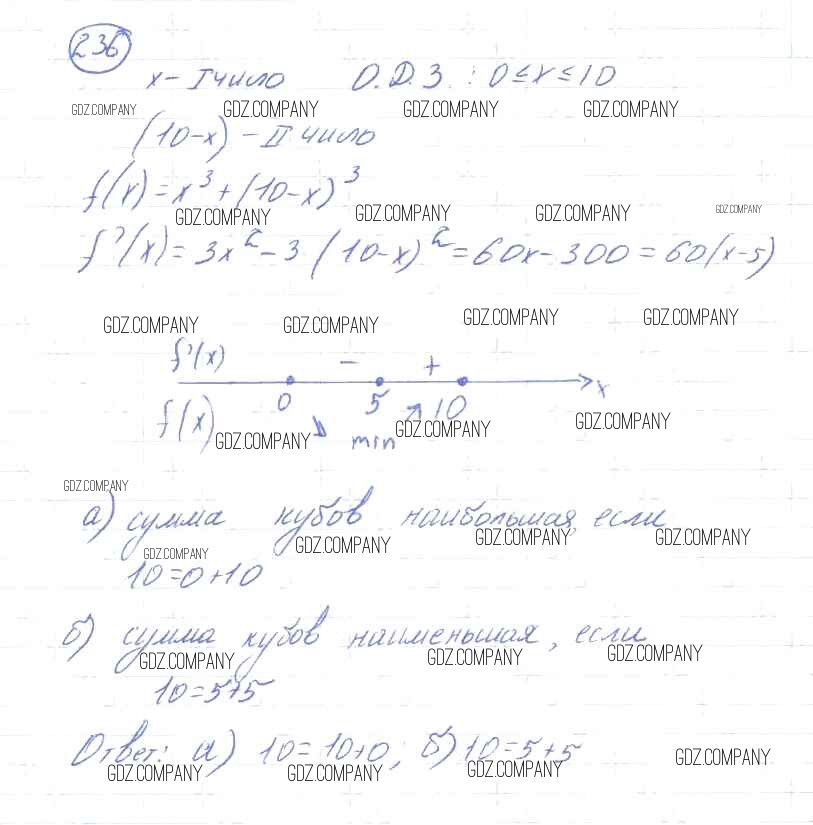 236
x – I число О.Д.З. : 0 ≤ x ≤ 10
GDZ.COMPANY GDZ.COMPANY GDZ.COMPANY GDZ.COMPANY
(10-x) – II число
f(x) = x³ + (10-x)³
GDZ.COMPANY GDZ.COMPANY GDZ.COMPANY GDZ.COMPANY
f'(x) = 3x² - 3 (10-x)² = 60x - 300 = 60(x-5)
GDZ.COMPANY GDZ.COMPANY GDZ.COMPANY GDZ.COMPANY
f'(x) – +
0 5 10 x
f(x) ↘ min ↗
GDZ.COMPANY GDZ.COMPANY GDZ.COMPANY
GDZ.COMPANY
а) сумма кубов наибольшая, если
GDZ.COMPANY GDZ.COMPANY GDZ.COMPANY GDZ.COMPANY
10=0+10
б) сумма кубов наименьшая, если
GDZ.COMPANY GDZ.COMPANY GDZ.COMPANY
10=5+5
Ответ: а) 10=10+0; б) 10=5+5
GDZ.COMPANY GDZ.COMPANY GDZ.COMPANY GDZ.COMPANY